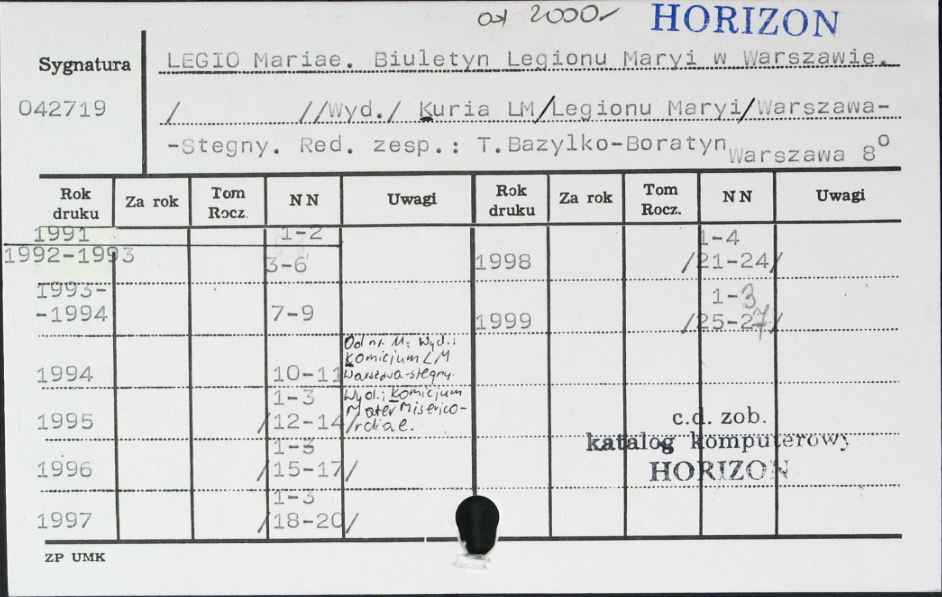 od 2000r HORIZON
Sygnatura
LEGIO Mariae. Biuletyn Legionu Maryi w Warszawie.
042719
/ //Wyd./ Kuria LM/Legionu Maryi/Warszawa-
-Stegny. Red. zesp.: T.Bazylko-Boratyn Warszawa 8°
Rok druku Za rok Tom Rocz. NN Uwagi Rok druku Za rok Tom Rocz. NN Uwagi
1991 1-2
1992-1993 3-6
1-4
1998 /21-24/
1993-
-1994 7-9
1-3
1999 /25-27/
Od nr. 11: Wyd.:
Komicjum LM
Warszawa-Stegny.
1994 10-11
Wyd.: Komicjum
Mater Miserico-
rdiae.
1-3
1995 /12-14/
1-3
1996 /15-17/
1-3
1997 /18-20/
c.d. zob.
katalog komputerowy
HORIZON
ZP UMK